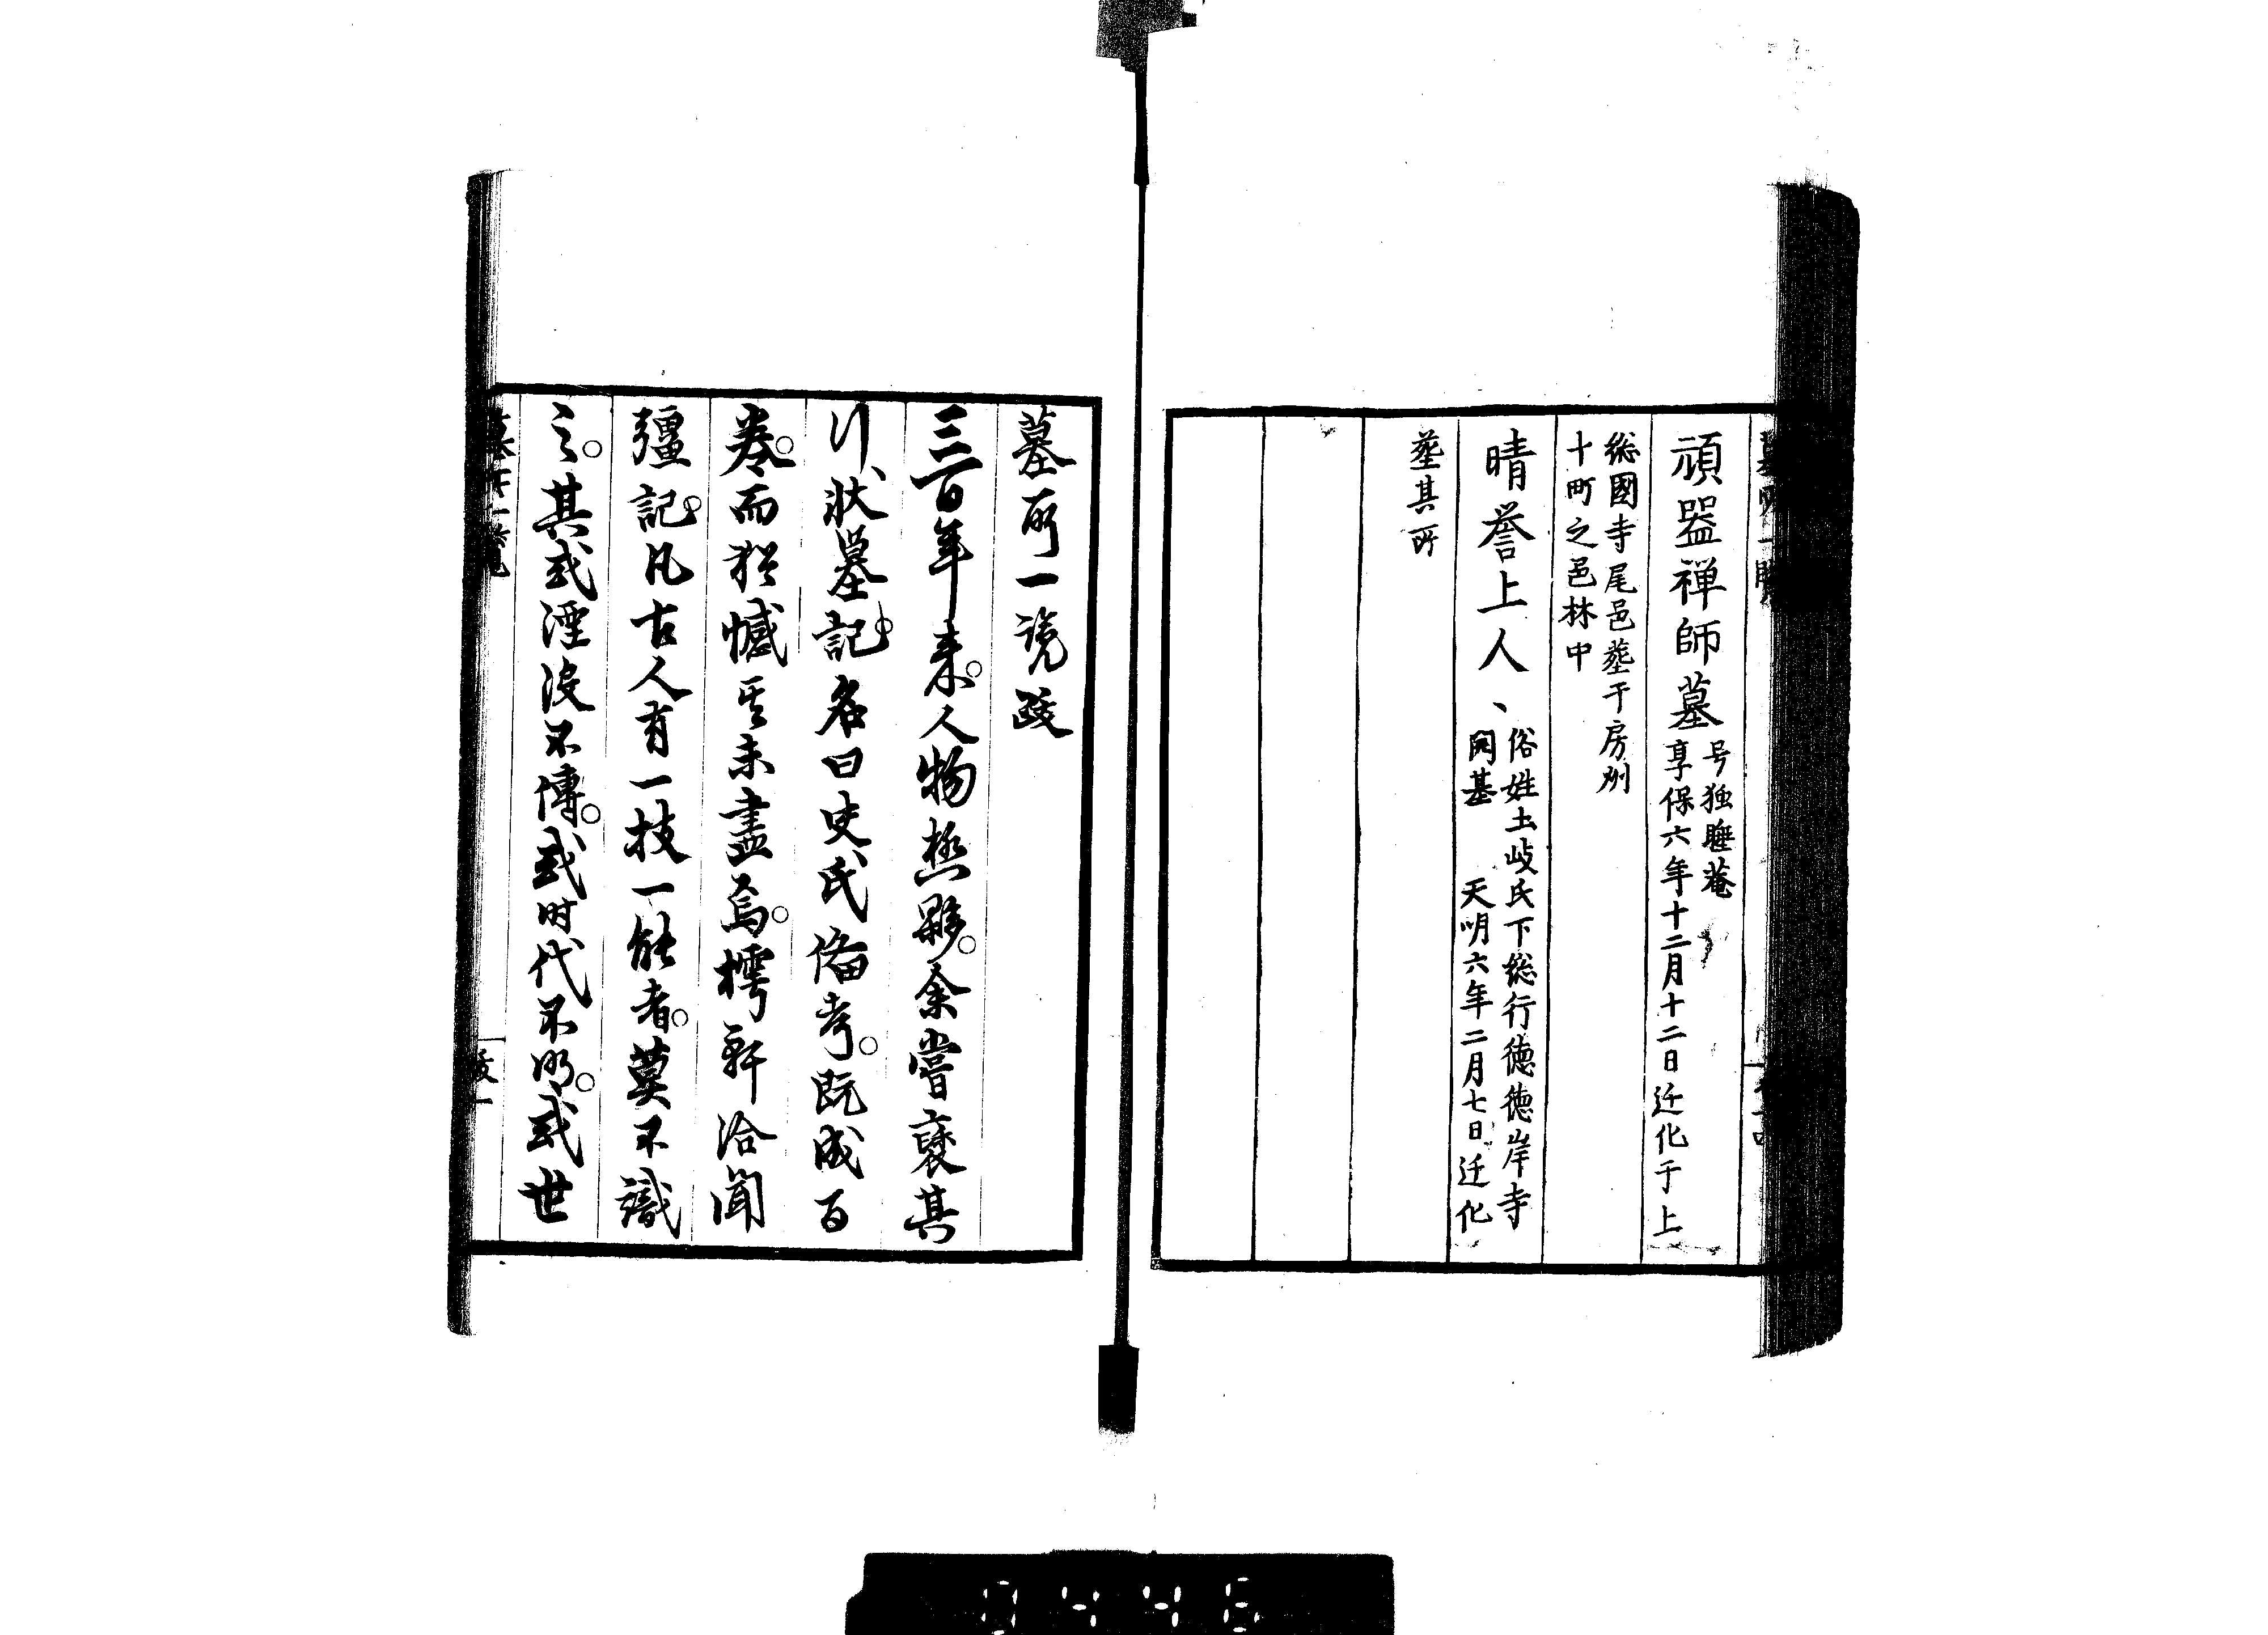 頑器禅師墓
号独睡菴
享保六年十二月十二日迁化于上
総國寺尾邑葬于房州
十町之邑林中
晴誉上人、
俗姓土岐氏下総行徳徳岸寺
開基 天明六年二月七日迁化
葬其所
墓所一覧跋
三百年来。人物極夥。余嘗裒其
行状墓記。名曰史氏備考。既成百
巻。而猶憾其未盡焉。樗軒洽聞
彊記。凡古人有一技一能者。莫不識
之。其或湮没不傳。或时代不明。或世
墓所一覧
跋一